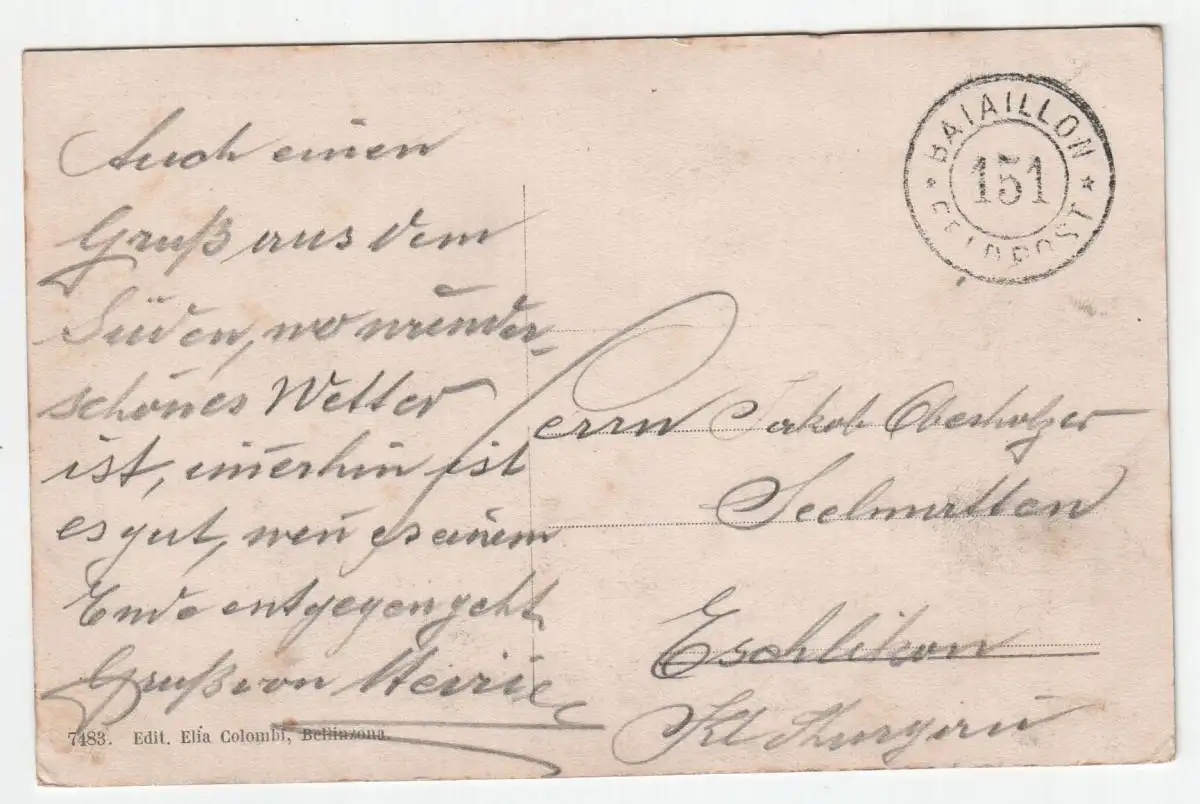 Auch einen
Gruß aus dem
Süden, wo wunder-
schönes Wetter
ist, im̅erhin ist
es gut, wen̅ es einem
Ende entgegengeht
Gruß von Heiri
7483. Edit. Elia Colombi, Bellinzona.
* BATAILLON *
151
FELDPOST
Herrn Jakob Oberholzer
Seelmatten
Eschlikon
Kt Thurgau